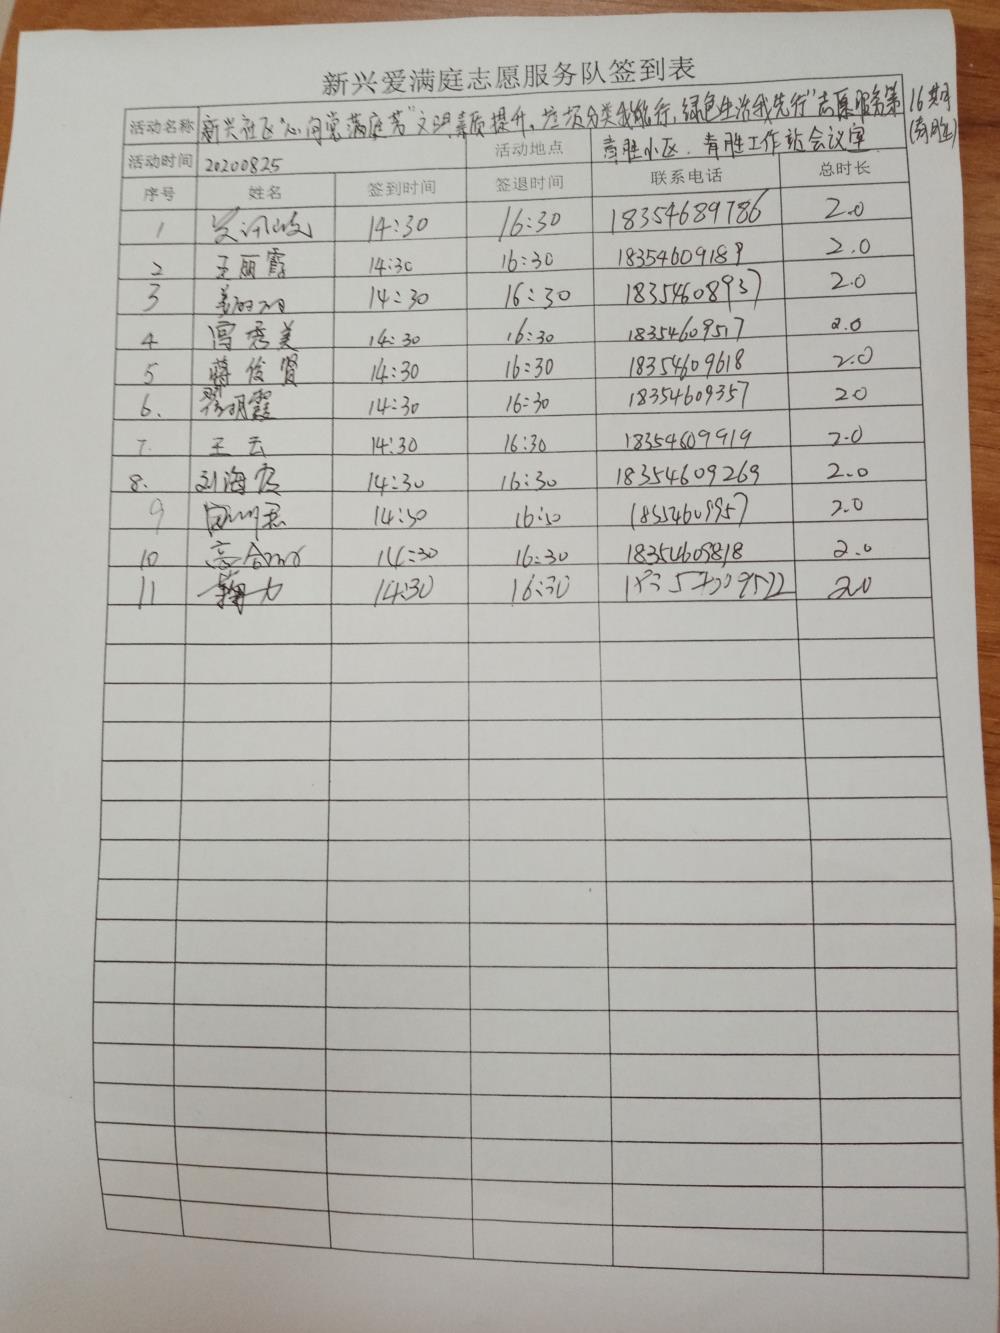 新兴爱满庭志愿服务队签到表
活动名称 新兴社区"心向党满庭芳"文明素质提升、垃圾分类我能行,绿色生活我先行"志愿服务第16
(青胜)
活动时间 20200825 活动地点 青胜小区、青胜工作站会议室
序号 姓名 签到时间 签退时间 联系电话 总时长
1 14:30 16:30 18354689786 2.0
2 王丽霞 14:30 16:30 18354609189 2.0
3 14:30 16:30 18354608937 2.0
4 冯秀美 14:30 16:30 18354609517 2.0
5 蒋俊贤 14:30 16:30 18354609618 2.0
6. 翟明霞 14:30 16:30 18354609357 20
7. 王云 14:30 16:30 18354609919 2.0
8. 刘海霞 14:30 16:30 18354609269 2.0
9 14:30 16:30 18354609957 2.0
10 14:30 16:30 18354609818 2.0
11 14:30 16:30 2.0